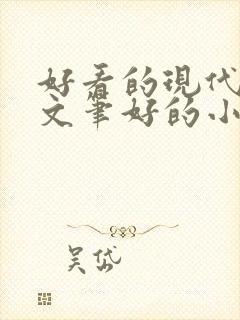 好看的现代
文笔好的小
吴岱